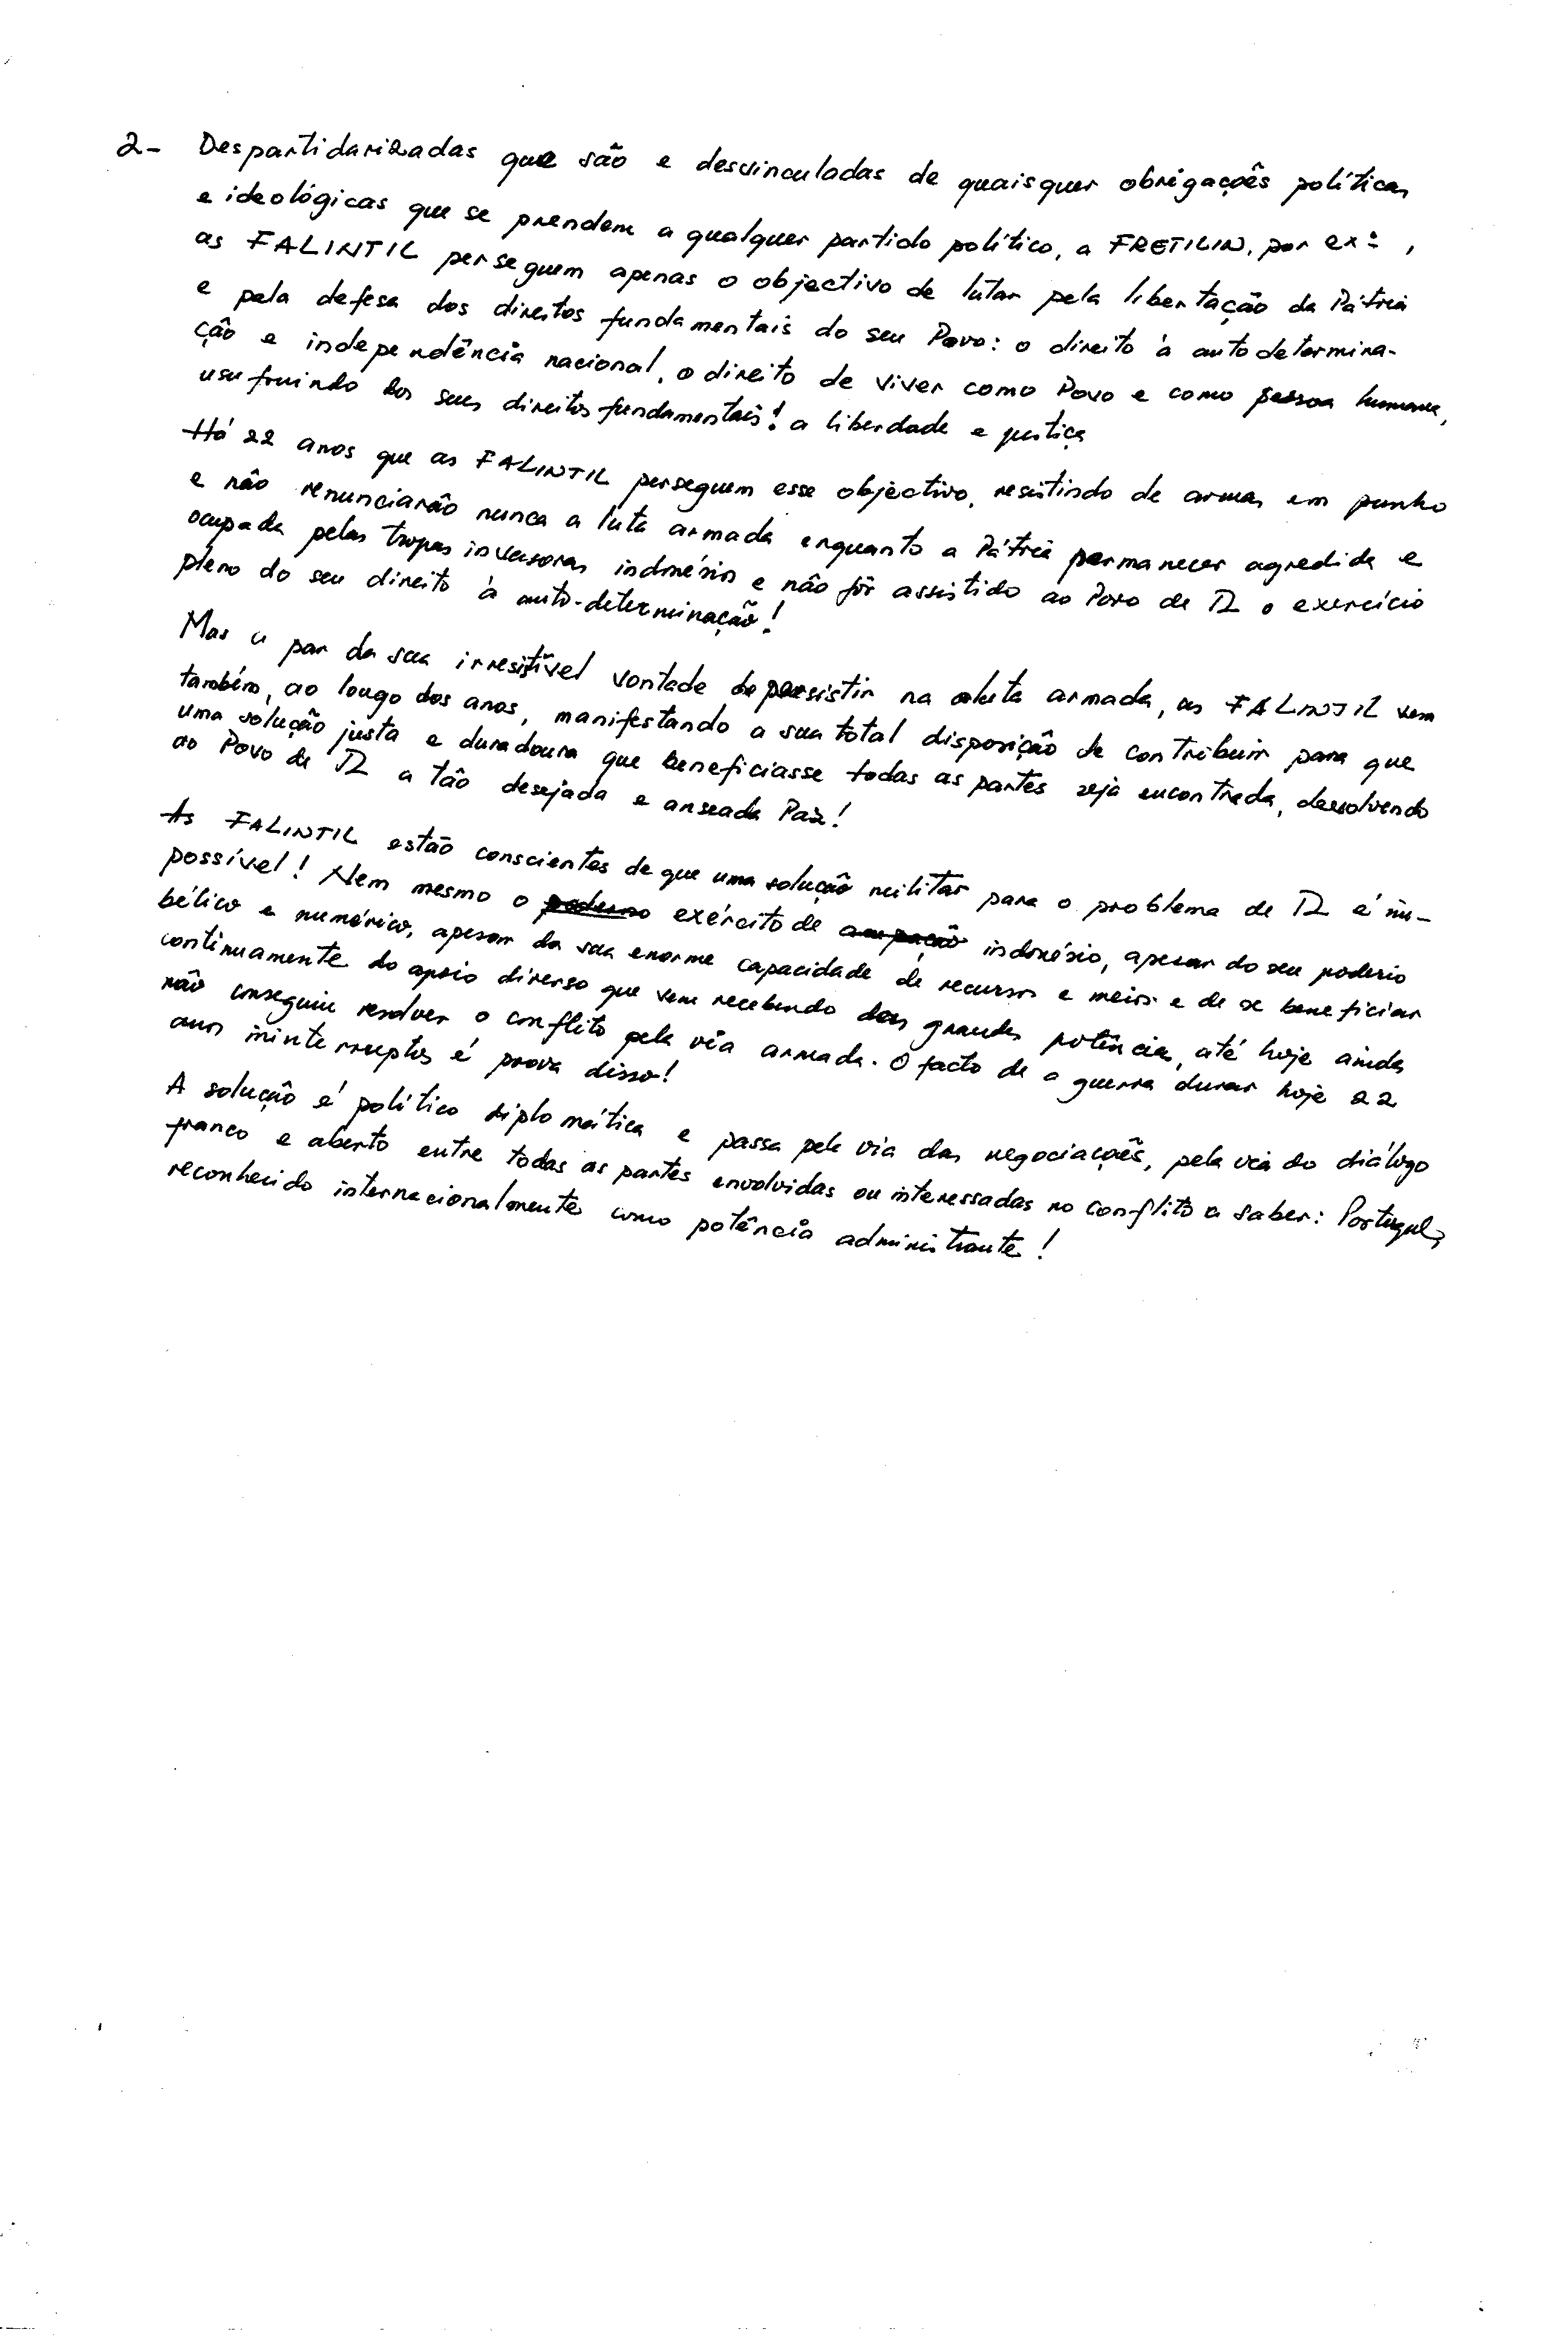 2- Despartidarizadas que são e desvinculadas de quaisquer obrigações políticas
e ideológicas que se prendem a qualquer partido político, a FRETILIN, por exº,
as FALINTIL perseguem apenas o objectivo de lutar pela libertação da Pátria
e pela defesa dos direitos fundamentais do seu Povo: o direito à autodetermina-
ção e independência nacional, o direito de viver como Povo e como pessoa humana,
usufruindo dos seus direitos fundamentais! a liberdade e justiça
Há 22 anos que as FALINTIL perseguem esse objectivo, resistindo de armas em punho
e não renunciarão nunca a luta armada enquanto a Pátria permanecer agredida e
ocupada pelas tropas invasoras indonésias e não fôr assistido ao Povo de TL o exercício
pleno do seu direito à auto-determinação!
Mas a par da sua irresistível vontade de persistir na luta armada, as FALINTIL vem
também, ao longo dos anos, manifestando a sua total disposição de contribuir para que
uma solução justa e duradoura que beneficiasse todas as partes seja encontrada, devolvendo
ao Povo de TL a tão desejada e anseada Paz!
As FALINTIL estão conscientes de que uma solução militar para o problema de TL é im-
possível! Nem mesmo o exército de indonésio, apesar do seu poderio
bélico e numérico, apesar da sua enorme capacidade de recursos e meios e de se beneficiar
continuamente do apoio diverso que vem recebendo das grandes potências, até hoje ainda
não conseguiu resolver o conflito pela via armada. O facto de a guerra durar hoje 22
anos ininterruptos é prova disso!
A solução é político diplomática e passa pela via das negociações, pela via do diálogo
franco e aberto entre todas as partes envolvidas ou interessadas no conflito a saber: Portugal,
reconhecido internacionalmente como potência administrante!